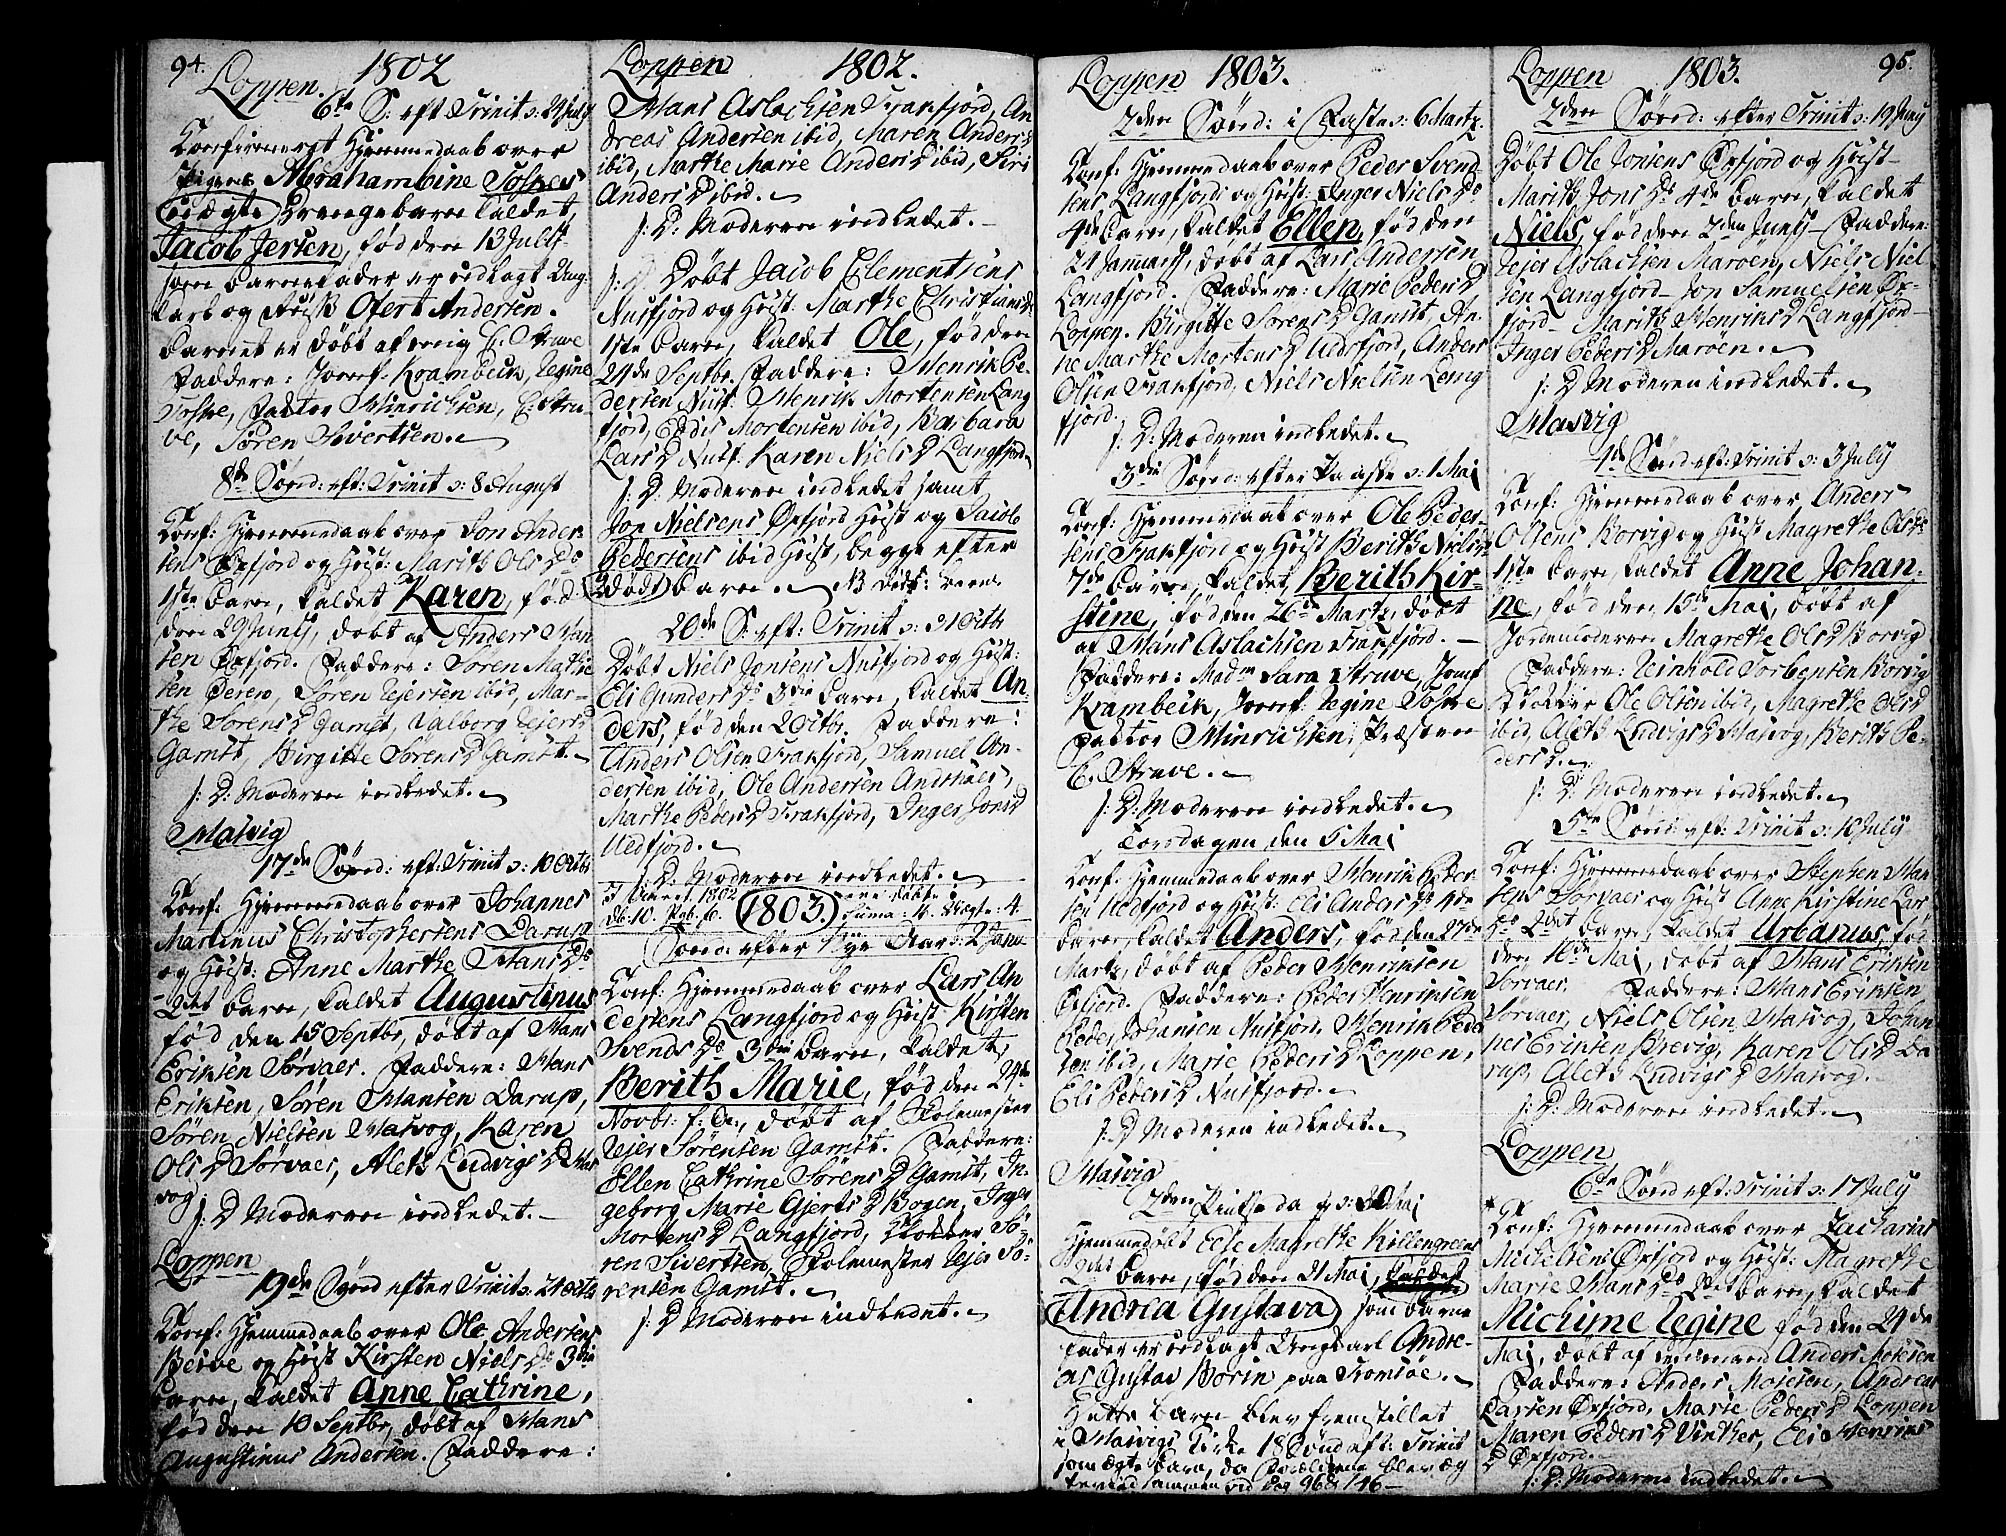 94.
Loppen. 1802
6te S: eft Trinit s: 24 July
Confirmeret Hjemmedaab over
Pigen Abrahamine Toskes
uægte Drengebarn kaldet,
Jacob Jersen, fød den 13 July
som Barnefader er udlagt Ung
karl og Ofert Andersen.
Barnet er døbt af mig E: Struve
Faddere: Jomf: Krambeck, Regine
Toske, Factor Hinrichsen, E: Stru-
ve, Søren Sivertsen.
8de Sønd: eft: Trinit s: 8 August
Conf: Hjemmedaab over Jon Ander-
sens Øxfjord og Hust: Marith Ols Ds
1ste Barn, kaldet Karen, fød
den 29 Juny, døbt af Anders Han-
sen Øxfjord. Faddere: Søren Mathie
sen, Søren Rejersen ibid, Mar-
the Sørens D Gamst, Valborg Rejers D
Gamst, Birgitte Sørens D Gamst.
s: D: Moderen indledet.
Hasvig
17de Sønd: eft: Trinit s: 10 Octb
Conf: Hjemmedaab over Johannes
Martinus Christophersens Darup
og Hust: Anne Marthe Hans Ds
2det Barn, kaldet Augustinus
fød den 15 Septbr, døbt af Hans
Eriksen Sørvaer. Faddere: Hans
Eriksen, Søren Hansen Darup,
Søren Nielsen Hasvog, Karen
Ols D Sørvaer, Aleth Ludvigs D Has
vog
s: D Moderen indledet.
Loppen
19de Sønd efter Trinit s: 24 Octb
Conf: Hjemmedaab over Ole Andersens
og Hust Kirsten Niels Ds 3die
Barn, kaldet Anne Cathrine,
fød den 10 Septbr, døbt af Hans
Augustinus Andersen. Faddere:
Loppen 1802.
Hans Aslachsen Frakfjord, An
dreas Andersen ibid, Maren Anders D
ibid, Marthe Marie Anders D ibid, Siri
Anders D ibid.
s: D: Moderen indledet.
s: D Døbt Jacob Clementsens
Nusfjord og Hust: Marthe Christians Ds
1ste Barn, kaldet Ole, fød den
24de Septbr. Faddere: Henrik Pe-
dersen Nusf: Henrik Mortensen Lang
fjord, Mortensen ibid, Barbara
Lars D Nusf. Karen Niels D Langfjord
s: D: Moderen indledet samt
Jon Nielsens Øxfjord Hust og Jacob
Pedersens ibid Hust, begge efter
2 døde Børn.
20de S: eft: Trinit s: 31 Octb
Døbt Niels Jonsens Nusfjord og Hust:
Eli Gunders Ds 3die Barn, kaldet An-
ders, fød den 2 Octbr. Faddere:
Anders Olsen Frakfjord, Samuel An-
dersen ibid, Ole Andersen Andsnaes,
Marthe Peders D Frakfjord, Inger Jons D
Uedfjord.
s: D: Moderen indledet.
I Aaret 1802
1803
Sønd: efter Nye Aar s: 2 Janu
Conf: Hjemmedaab over Lars An
dersens Langfjord og Hust Kirsten
Svends Ds 3die Barn, kaldet,
Berith Marie, fød den 24de
Novbr: f: A:, døbt af Skolemester
Rejer Sørensen Gamst. Faddere:
Ellen Cathrine Sørens D Gamst, In-
geborg Marie Gjerts D Bogen, Inger
Mortens D Langfjord, Sø-
ren Sivertsen, Skolemester Rejer Sø-
rensen Gamst.
s: D Moderen indledet.
Loppen 1803.
2den Sønd: i Faste s: 6 Martz.
Conf: Hjemmedaab over Peder Svend
sens Langfjord og Hust Inger Niels Ds
4de Barn, kaldet Ellen, fød den
24 January, døbt af Lars Andersen
Langfjord. Faddere: Marie Peders D
Loppen. Birgitte Sørens D Gamst, An-
ne Marthe Mortens D Uedsfjord, Anders
Olsen Frakfjord, Niels Nielsen Lang
fjord.
s: D: Moderen indledet.
3die Sønd: efter Paaske s: 1 Mai
Conf: Hjemmedaab over Ole Peder-
sens Frakfjord og Hust Berith Niels Ds
7de Barn, kaldet, Berith Kir-
stine, fød den 26de Martz, døbt
af Hans Aslachsen Frakfjord.
Faddere: Madm Sara Struve, Jomf
Krambeck, Jomf: Regine Toske
Factor Hinrichsen, Præsten
E. Struve.
s: D: Moderen indledet.
Torsdagen den 5 Mai
Conf: Hjemmedaab over Henrik Peder
sen Uedfjord og Hust: Eli Anders Ds 4de
Barn, kaldet Anders, fød den 27de
Martz, døbt af Peder Henriksen
Faddere: Peder Henriksen
Peder Johansen Nusfjord, Henrik Peder
sen ibid, Marie Peders D Loppen,
Eli Peders D Nusfjord.
s: D Moderen indledet.
Hasvig
2den Pintsedag s: 30 Mai
Hjemmedøbt Else Magrethe Killengreens
Barn, fød den 21 Mai, kaldet
Andrea Gustava som Barne
fader er udlagt Ungkarl Andre-
as Gustav Borin paa Tromsøe.
Dette Barn blev fremstillet
i Hasvigs Kirke 18 Sønd eft: Trinit
som ægte Barn, da Forældrene blev æg
teviede sammen vid Pag 96 & 146
Loppen 1803. 95.
2den Sønd: efter Trinit s: 19 Juny
Døbt Ole Jonsens Øxfjord og Hust
Marith Jons Ds 4de Barn, kaldet
Niels, fød den 2den Juny. Faddere:
Rejer Aslachsen Marøen, Niels Niel
sen Langfjord, Jon Samuelsen Øx-
fjord, Marith Henriks D Langfjord
Inger Peders D Marøen.
s: D Moderen indledet.
Hasvig
4de Sønd eft: Trinit s: 3 July
Conf: Hjemmedaab over Anders
Olsens Borvig og Hust Magrethe Ols Ds
1ste Barn, kaldet Anne Johan-
ne, fød den 15de Mai, døbt af
Jordemoderen Magrethe Ols D Borvig
Faddere: Reinhold Torbensen Borvig
Ole Olsen ibid, Magrethe Ols D
ibid, Aleth Ludvigs D Hasvog, Berith Pe-
ders D.
s: D: Moderen indledet.
5te Sønd: eft: Trinit s: 10 July
Conf: Hjemmedaab over Stephen Han
sens Sørvaer og Hust Anne Kirstine Lars
Ds 2det Barn, kaldet Urbanus, fød
den 16de Mai, døbt af Hans Eriksen
Sørvaer. Faddere: Hans Eriksen
Sørvaer, Niels Olsen, Hasvog, Johan-
nes Eriksen Brevig, Karen Ols D Da
rup, Aleth Ludvigs D Hasvog.
s: D: Moderen indledet.
Loppen
6te Sønd eft: Trinit s: 17 July
Conf: Hjemmedaab over Zacharias
Michelsens Øxfjord og Hust: Magrethe
Marie Hans Ds Barn, kaldet
Michime Regine fød den 24de
Mai, døbt af Anders Mosesen
Faddere: Anders Mosesen, Andreas
Larsen Øxfjord, Marie Peders D Loppen
Maren Peders D Vinther, Eli Henriks
D Øxfjord.
s: D: Moderen indledet.